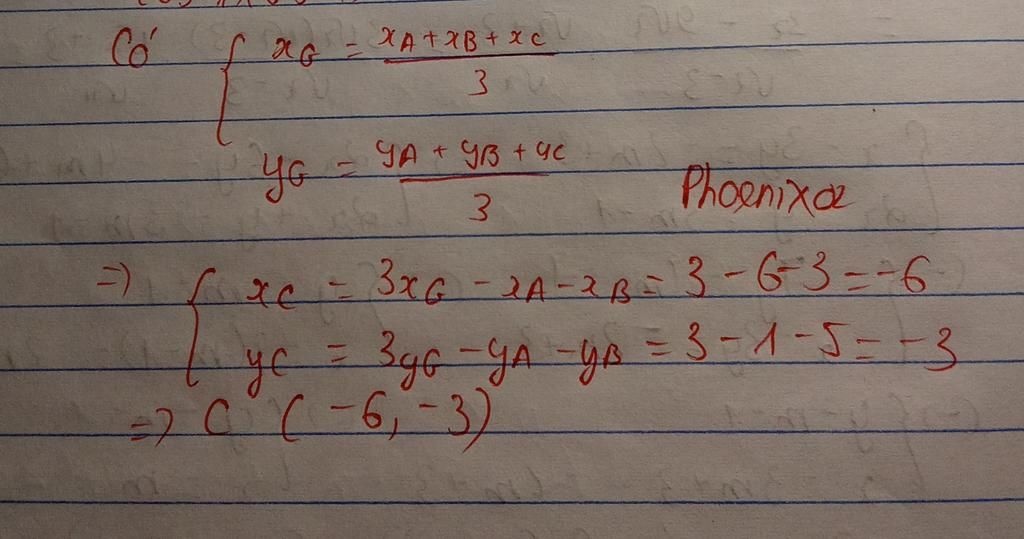 Có { xG = xA + xB + xC / 3
yG = yA + yB + yC / 3
Phoenixoz
=> { xC = 3xG - xA - xB = 3 - 6 - 3 = -6
yC = 3yG - yA - yB = 3 - 1 - 5 = -3
=> C (-6, -3)